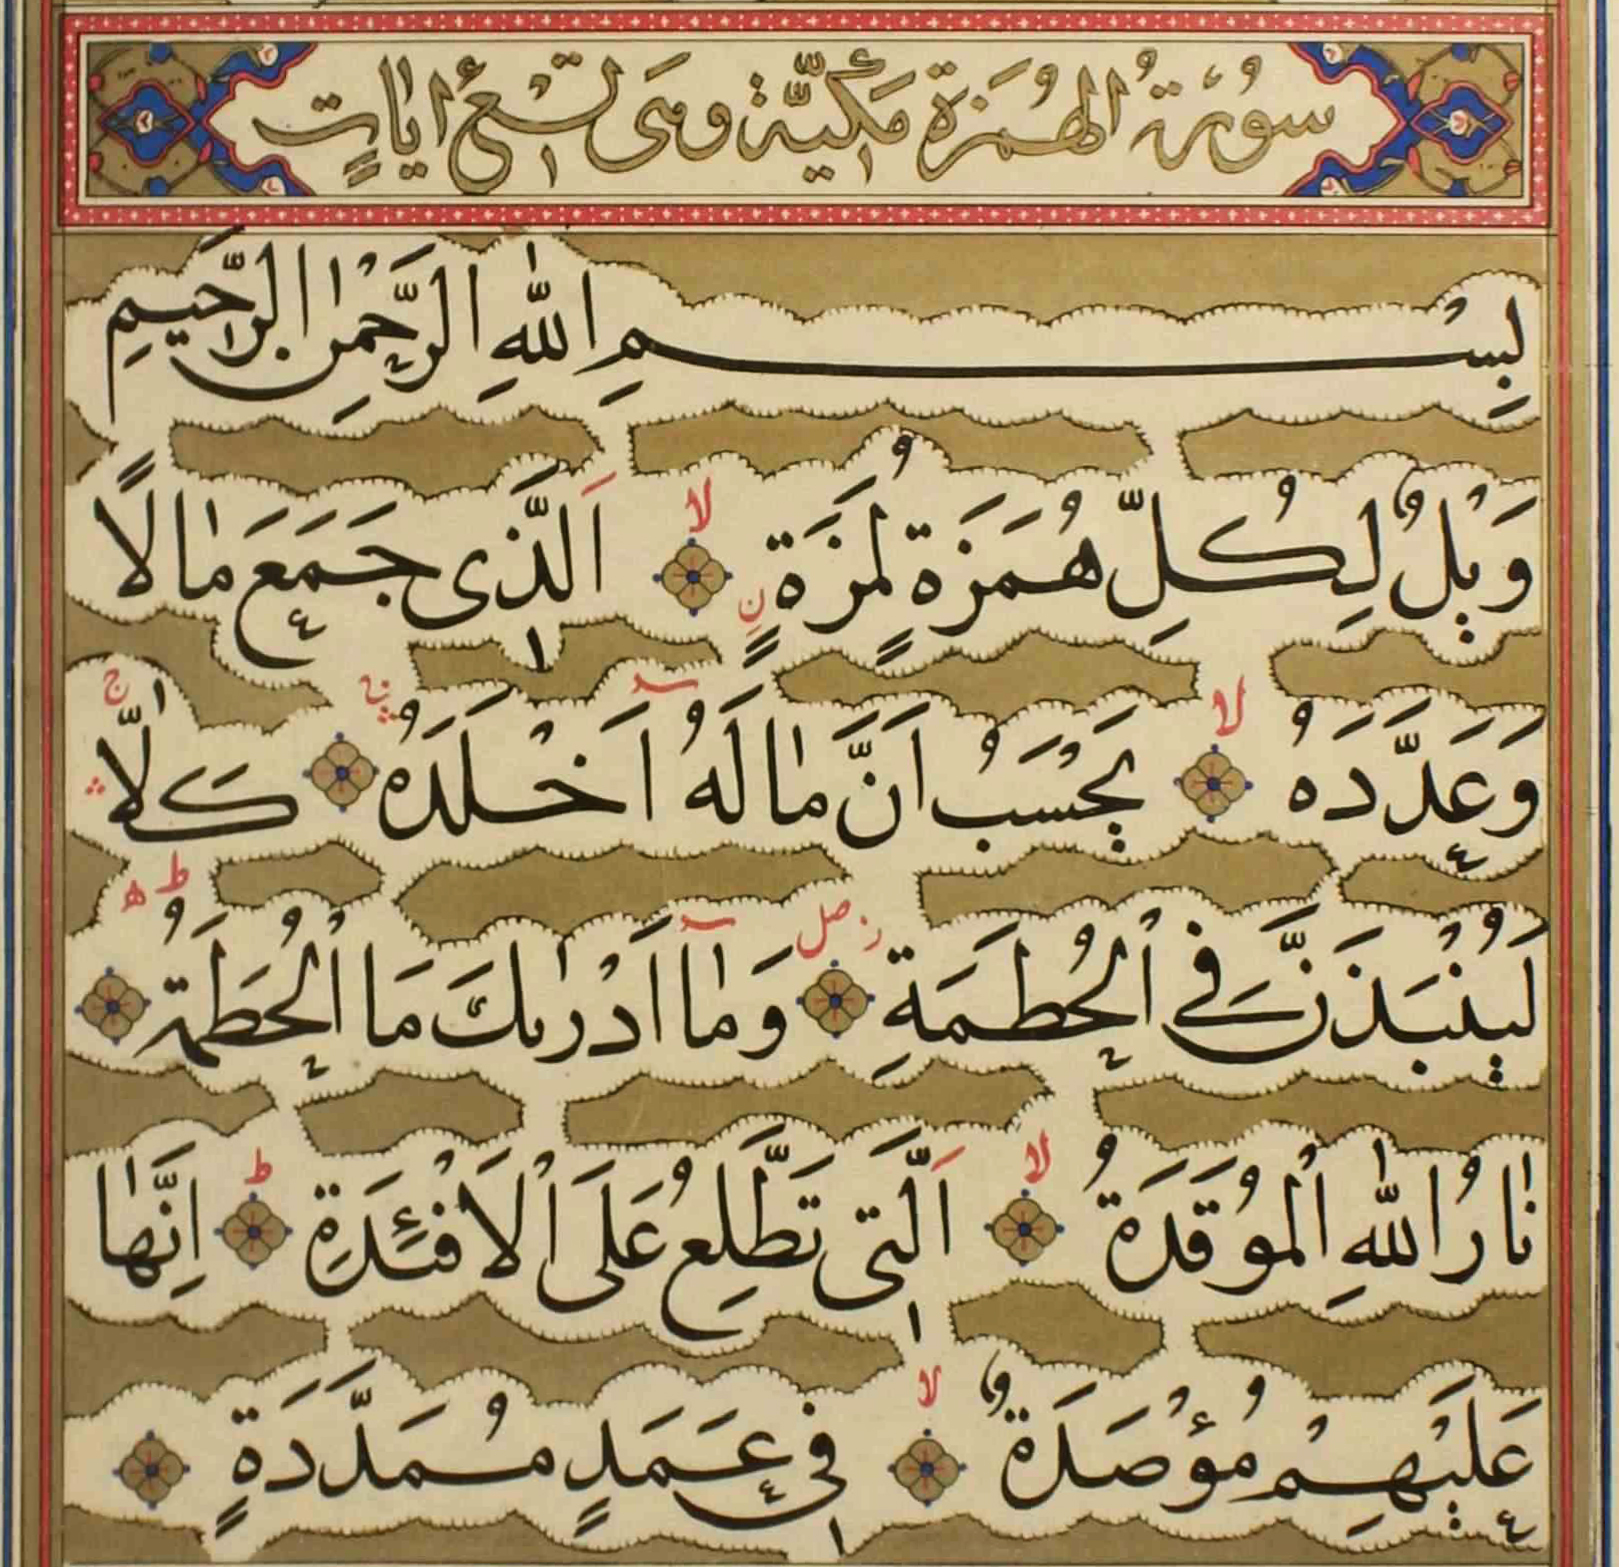 سُورَةُ الْهُمَزَةِ مَكِّيَّةٌ وَهِىَ تِسْعُ اٰيَاتٍ
بِسْمِ اللّٰهِ الرَّحْمٰنِ الرَّحِيمِ
وَيْلٌ لِكُلِّ هُمَزَةٍ لُمَزَةٍ ۙ اَلَّذِى جَمَعَ مَالًا
وَعَدَّدَهُ ۙ يَحْسَبُ اَنَّ مَالَهُ اَخْلَدَهُ كَلَّا
لَيُنْبَذَنَّ فِى الْحُطَمَةِ وَمَا اَدْرٰىكَ مَا الْحُطَمَةُ
نَارُ اللّٰهِ الْمُوقَدَةُ ۙ اَلَّتِى تَطَّلِعُ عَلَى الْاَفْئِدَةِ ط اِنَّهَا
عَلَيْهِمْ مُؤْصَدَةٌ ۙ فِى عَمَدٍ مُمَدَّدَةٍ